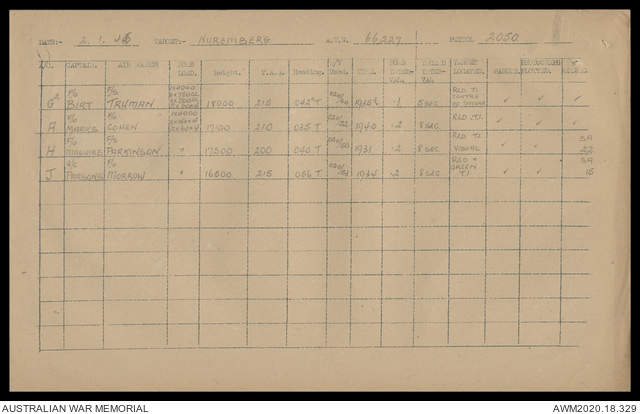 DATE:- 2.1.45 TARGET:- NUREMBERG A.U.W. 66227 PETROL 2050
CAPTAIN. AIR BOMBER BOMB LOAD. Height. T.A.S. Heading. W/V Used. TIME. BOMB INTERVAL. TARGET LOCATED. PHOTOGRAPH PLOTTED.
G² F/O BIRT F/O TRUMAN 18000 215 042°T .1 8 SEC RED TI CENTRE ✓ ✓ ✓
A F/O MARKS F/O COHEN 17100 210 035 T 1940 .2 8 SEC RED TI. ✓ ✓ ✓
H F/O MAGUIRE F/S PARKINSON " 17500 200 040 T 1931 .2 8 SEC RED TI VISUAL ✓ ✓ SA 22
J PARSONS F/O MORROW " 16600 215 056 T 1934 .2 8 SEC RED & GREEN TI ✓ ✓ SA 15
AUSTRALIAN WAR MEMORIAL
AWM2020.18.329